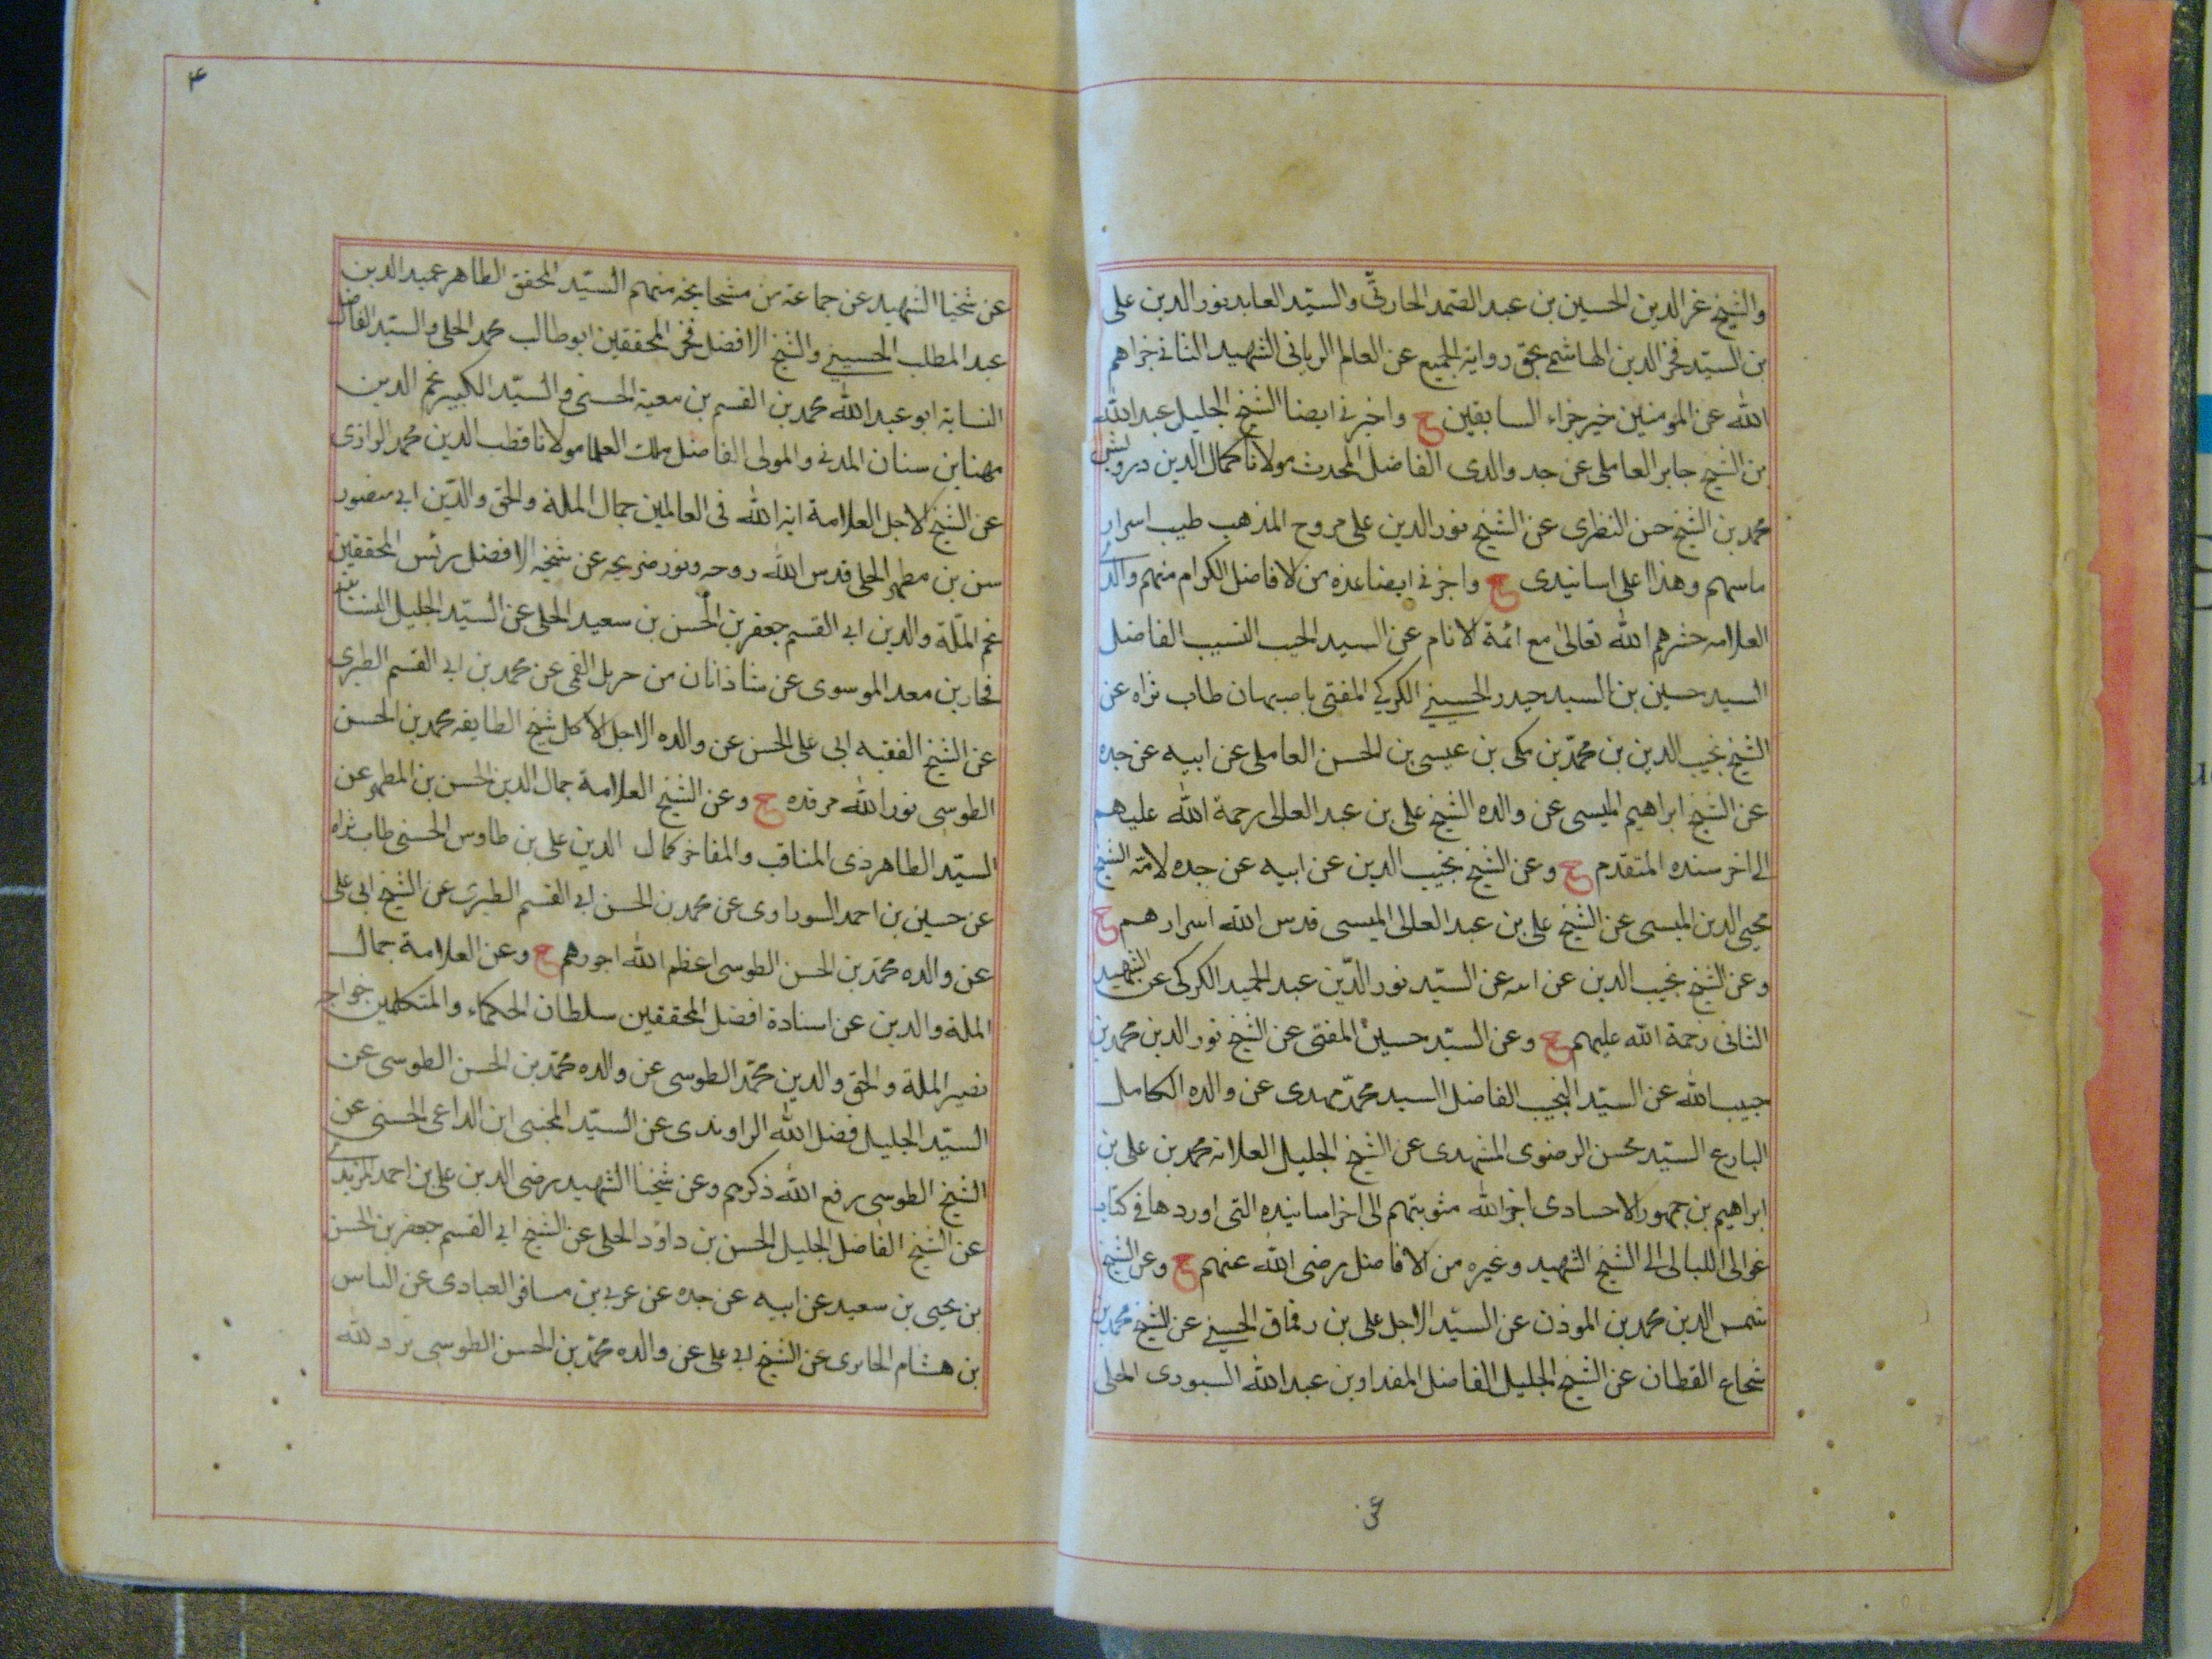 والشيخ عز الدين الحسين بن عبد الصمد الحارثي والسيد العابد نور الدين على
بن السيد فخر الدين الهاشمي بحق رواية الجميع عن العالم الرباني الشهيد الثاني جزاهم
الله عن المؤمنين خير جزاء السابقين ح واخبرني ايضا الشيخ الجليل عبد الله
بن الشيخ جابر العاملي عن جد والدى الفاضل المحدث مولانا كمال الدين درويش
محمد بن الشيخ حسن النطنزى عن الشيخ نور الدين على مروح المذهب طيب اسرار
ماسهم وهذا اعلى اسانيدى ح واخبرني ايضا عده من الافاضل الكرام منهم والد
العلامه حشرهم الله تعالى مع ائمة الانام عن السيد الحسيب النسيب الفاضل
السيد حسين بن السيد حيدر الحسيني الكركي المفتى باصبهان طاب ثراه عن
الشيخ نجيب الدين بن محمد بن مكى بن عيسى بن الحسن العاملى عن ابيه عن جده
عن الشيخ ابراهيم الميسى عن والده الشيخ على بن عبد العالى رحمة الله عليهم
الى اخر سنده المتقدم ح وعن الشيخ نجيب الدين عن ابيه عن جده لامه الشيخ
محيى الدين الميسى عن الشيخ على بن عبد العالى الميسى قدس الله اسرارهم ح
وعن الشيخ نجيب الدين عن ابيه عن السيد نور الدين عبد الحميد الكركى عن الشهيد
الثانى رحمة الله عليهم ح وعن السيد حسين المفتى عن الشيخ نور الدين محمد بن
حبيب الله عن السيد النجيب الفاضل السيد محمد مهدى عن والده الكامل
البارع السيد محسن الرضوى المشهدى عن الشيخ الجليل العلامه محمد بن على بن
ابراهيم بن جمهور الاحسادى اجزل الله مثوبتهم الى اخر اسانيده التى اوردها فى كتاب
غوالى اللئالى الى الشيخ الشهيد وغيره من الافاضل رضى الله عنهم ح وعن الشيخ
شمس الدين محمد بن الموذن عن السيد الاجل على بن دقماق الحسينى عن الشيخ محمد بن
شجاع القطان عن الشيخ الجليل الفاضل المقداد بن عبد الله السيورى الحلى
عن
۴
عن شيخنا الشهيد عن جماعة من مشايخه منهم السيد المحقق الطاهر عميد الدين
عبد المطلب الحسيني والشيخ الافضل فخر المحققين ابو طالب محمد الحلى والسيد الفاضل
النسابة ابو عبد الله محمد بن القسم بن معية الحسنى والسيد الكبير نجم الدين
مهنا بن سنان المدنى والمولى الفاضل ملك العلما مولانا قطب الدين محمد الرازى
عن الشيخ الاجل العلامة اية الله فى العالمين جمال الملة والحق والدين ابى منصور
سن بن مطهر الحلى قدس الله روحه ونور ضريحه عن شيخه الافضل رئس المحققين
نجم الملة والدين ابى القسم جعفر بن الحسن بن سعيد الحلى عن السيد الجليل النسابه
فخار بن معد الموسوى عن شاذان بن جبريل القمى عن محمد بن ابى القسم الطبرى
عن الشيخ الفقيه ابى على الحسن عن والده الاجل الاكمل شيخ الطايفه محمد بن الحسن
الطوسى نور الله مرقده ح وعن الشيخ العلامة جمال الدين الحسن بن المطهر عن
السيد الطاهر ذى المناقب والمفاخر كمال الدين على بن طاوس الحسنى طاب ثراه
عن حسين بن احمد السوراوى عن محمد بن الحسن ابى القسم الطبرى عن الشيخ ابى على
عن والده محمد بن الحسن الطوسى اعظم الله اجورهم ح وعن العلامة جمال
الملة والدين عن استادة افضل المحققين سلطان الحكماء والمتكلمين خواجه
نصير الملة والحق والدين محمد الطوسى عن والده محمد بن الحسن الطوسى عن
السيد الجليل فضل الله الراوندى عن السيد المجتبى ابن الداعى الحسنى عن
الشيخ الطوسى رفع الله ذكرهم وعن شيخنا الشهيد رضى الدين على بن احمد المزيدى
عن الشيخ الفاضل الجليل الحسن بن داود الحلى عن الشيخ ابى القسم جعفر بن الحسن
بن يحيى بن سعيد عن ابيه عن جده عن عربى بن مسافر العبادى عن الياس
بن هشام الحائرى عن الشيخ ابى على عن والده محمد بن الحسن الطوسى برد الله